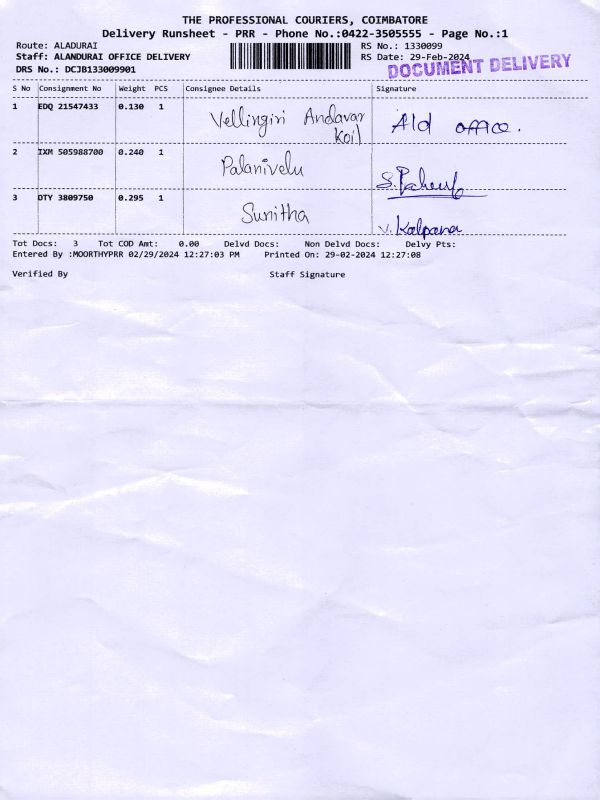 THE PROFESSIONAL COURIERS, COIMBATORE
Delivery Runsheet - PRR - Phone No.:0422-3505555 - Page No.:1
Route: ALADURAI RS No.: 1330099
Staff: ALANDURAI OFFICE DELIVERY RS Date: 29-Feb-2024
DRS No.: DCJB133009901 DOCUMENT DELIVERY
S No Consignment No Weight PCS Consignee Details Signature
1 EDQ 21547433 0.130 1 Vellingiri Andavar Koil Ald office.
2 IXM 505988700 0.240 1 Palanivelu
3 DTY 3809750 0.295 1 Sunitha V. Kalpana
Tot Docs: 3 Tot COD Amt: 0.00 Delvd Docs: Non Delvd Docs: Delvy Pts:
Entered By :MOORTHYPRR 02/29/2024 12:27:03 PM Printed On: 29-02-2024 12:27:08
Verified By Staff Signature